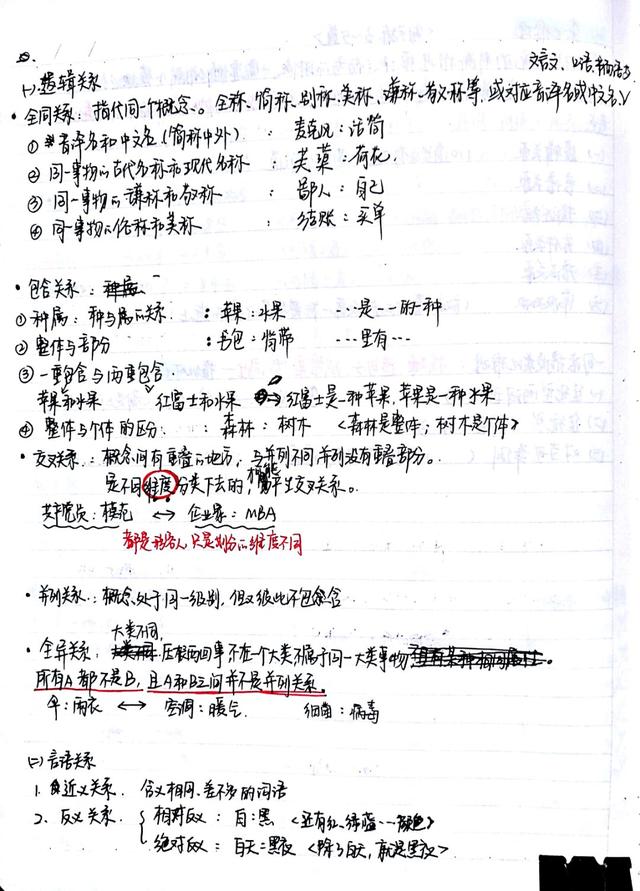 文言文、口语、书面语
(一)逻辑关系
• 全同关系:指代同一个概念。全称、简称、别称、美称、谦称、敬称等,或对应音译名或中文名
① 音译名和中文名(简称中外):麦克风:话筒
② 同一事物的古代名称和现代名称:芙蕖:荷花
③ 同一事物的谦称和敬称:鄙人:自己
④ 同一事物的俗称和美称:结账:买单
• 包含关系:种属
① 种属:种与属的关系:苹果:水果 …是…的一种
② 整体与部分:书包:背带 …里有…
③ 一重包含与两重包含
苹果和水果 红富士和水果 红富士是一种苹果,苹果是一种水果
④ 整体与个体的区分:森林:树木 <森林是整体;树木是个体>
• 交叉关系:概念间有重叠的地方,与并列不同,并列没有重叠部分。
是不同维度分类下去的,才能产生交叉关系。
共产党员:模范 ↔ 企业家:MBA
都是形容人,只是划分的维度不同
• 并列关系:概念处于同一级别,但又彼此不包含
大类不同,
• 全异关系:压根两回事,不在一个大类,不属于同一大类事物
所有A都不是B,且A和B之间并不是并列关系。
伞:雨衣 ↔ 空调:暖气 细菌:病毒
(二)言语关系
1. 近义关系. 含义相同、差不多的词语
2. 反义关系. { 相对反义:白:黑 <还有红、绿、蓝…颜色>
绝对反义:白天:黑夜 <除了白天,就是黑夜>